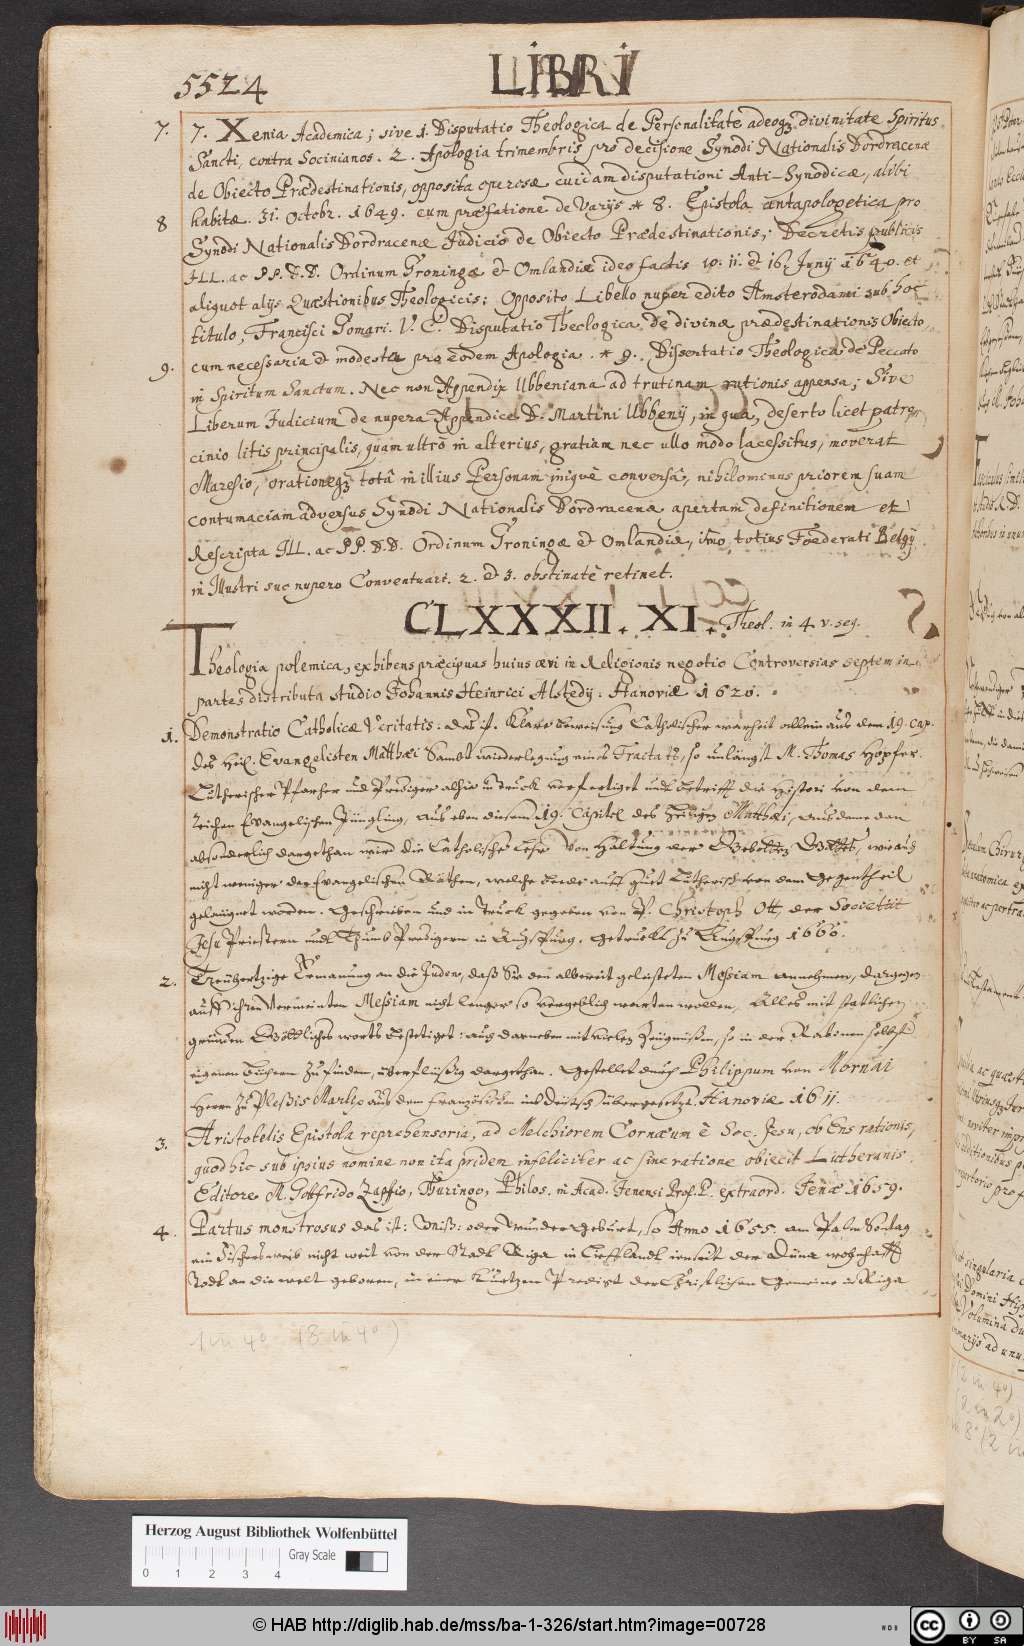 LIBRI
5524
7. 7. Xenia Academica; sive 1. Disputatio Theologica de Personalitate adeoq3 divinitate Spiritus
Sancti, contra Socinianos. 2. Apologia trimembris pro decisione Synodi Nationalis Dordracenæ
de Obiecto Prædestinationis, opposita operosæ cuidam disputationi Anti-Synodicæ, alibi
habitæ. 31. Octobr. 1649. cum præfatione de Varijs * 8. Epistola antapologetica pro
8 Synodi Nationalis Dordracenæ Judicio de Obiecto Prædestinationis; Decretis publicis
ILL. ac PP. D.D. Ordinum Groningæ et Omlandiæ ideo factis 10. 11. et 16. Junij 1640. et
aliquot alijs Quæstionibus Theologicis: Opposito Libello nuper edito Amsterodami sub hoc
titulo, Francisci Gomari. V. C. Disputatio Theologica de divinæ prædestinationis Obiecto,
9. cum necessaria et modesta pro eodem Apologia. * 9. Dissertatio Theologica de Peccato
in Spiritum Sanctum. Nec non Appendix Ubbeniana ad trutinam rationis appensa; Sive
Liberum Judicium de nupera Appendice D. Martini Ubbenij, in qua, deserto licet patro
cinio litis principalis, quam ultrò in alterius, gratiam nec ullo modo lacessitus, moverat
Maresio, orationeq3 totâ in illius Personam iniquè conversâ, nihilominus priorem suam
contumaciam adversus Synodi Nationalis Dordracenæ apertam definitionem et
Rescripta ILL. ac PP. D.D. Ordinum Groningæ et Omlandiæ, imo totius Foederati Belgij
in Illustri suo nupero Conventu ari. 2. et 3. obstinatè retinet.
CLXXXII. XI. Theol. in 4 v. seq.
Theologia polemica, exhibens præcipuas huius ævi in Religionis negotio Controversias septem in
partes distributa studio Johannis Heinrici Alstedij: Hanoviæ 1620.
1. Demonstratio Catholicæ Veritatis: das ist. Klare beweisung Catholischer warheit allein aus dem 19. Cap.
des Heil. Evangelisten Matthæi Sambt wiederlegung eines Tractats, so unlängst M. Thomas Hopfer
Lutherischer Pfarher und Prediger alhie in Druck verfertiget und betrifft die Histori von dem
Reichen Evangelischen Jüngling, aus eben diesem 19. Capitel des Heiligen Matthæi, aus deme dan
absonderlich dargethan wird die Catholische Lehr von Haltung der Gebotten Gottes, wie auch
nicht weniger der Evangelischen Räthen, welche beede auff guet Lutherisch von dem Gegentheil
gelaügnet worden. Geschrieben und in Truck gegeben von P. Christoph Ott, der Societät
Jesu Priestern und Thumb Predigern in Augspurg. Getruckt zu Augspurg 1660.
2. Treuhertzige Vermanung an die Juden, daß Sie den albereit geleisteten Messiam annehmen, dargegen
auff ihren Vermeinten Messiam nicht lenger so vergeblich warten wollen, Alles mit stattlichen
grunden Göttliches worts bestetiget: auch darneben mit vielen Zeügnüßen, so in der Rabinen selbst
eigenen Büchern zu finden, überflüßig dargethan. Gestellet durch Philippum von Mornai
Herrn zu Plessis Marly aus dem Französischen ins Deutsch übergesetzt. Hanoviæ 1611.
3. Aristotelis Epistola reprehensoria, ad Melchiorem Cornæum è Soc: Jesu, ob Ens rationis,
quod hic sub ipsius nomine non ita pridem infeliciter ac sine ratione obiecit Lutheranis
Editore M. Gottfrido Zapffio, Thuringo, Philos. in Acad. Jenensi Prof. P. extraord. Jenæ 1659.
4. Partus monstrosus das ist: Mniß: oder Wunder Geburt, so Anno 1655. am Palm Sontag
ein Fischers weib nicht weit von der Stadt Riga in Liefflandt ienseit der Düna wohnhafft
Todt an die welt geboren, in einer kurtzen Predigt der Christlichen Gemeine in Riga
1 in 4° (8 in 4°)
Herzog August Bibliothek Wolfenbüttel
Gray Scale
0 1 2 3 4
© HAB http://diglib.hab.de/mss/ba-1-326/start.htm?image=00728
WDB
cc BY SA